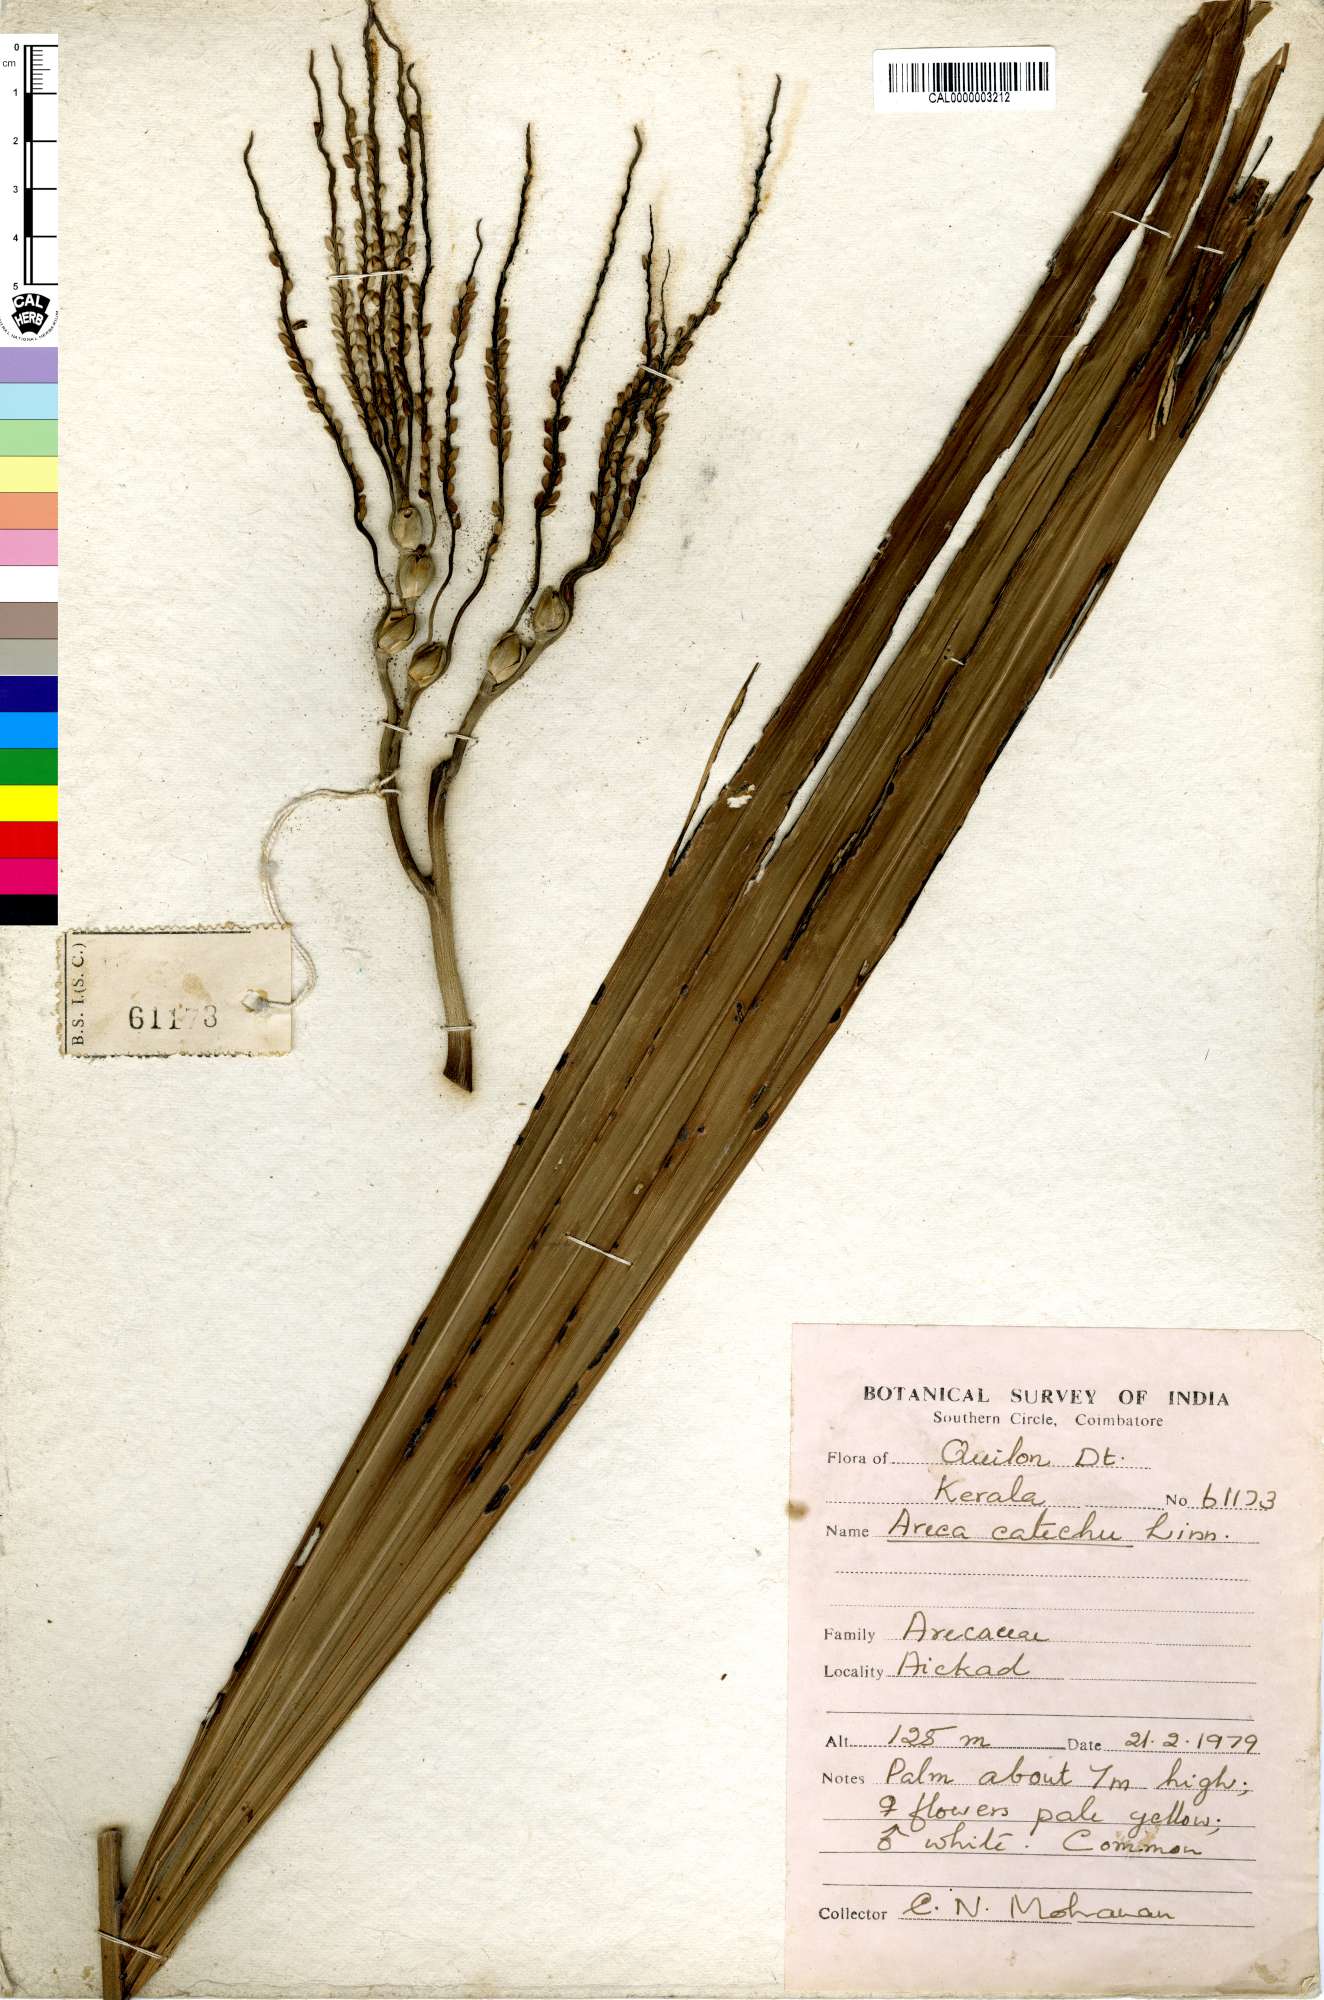 0
cm
1
2
3
4
5
CAL
HERB
CAL0000003212
B. S. I. (S. C.)
61173
BOTANICAL SURVEY OF INDIA
Southern Circle, Coimbatore
Flora of Quilon Dt.
Kerala No 61173
Name Areca catechu Linn.
Family Arecaceae
Locality Aickad
Alt. 125 m Date 21.2.1979
Notes Palm about 7m high;
♀ flowers pale yellow;
♂ white. Common
Collector C. N. Mohanan